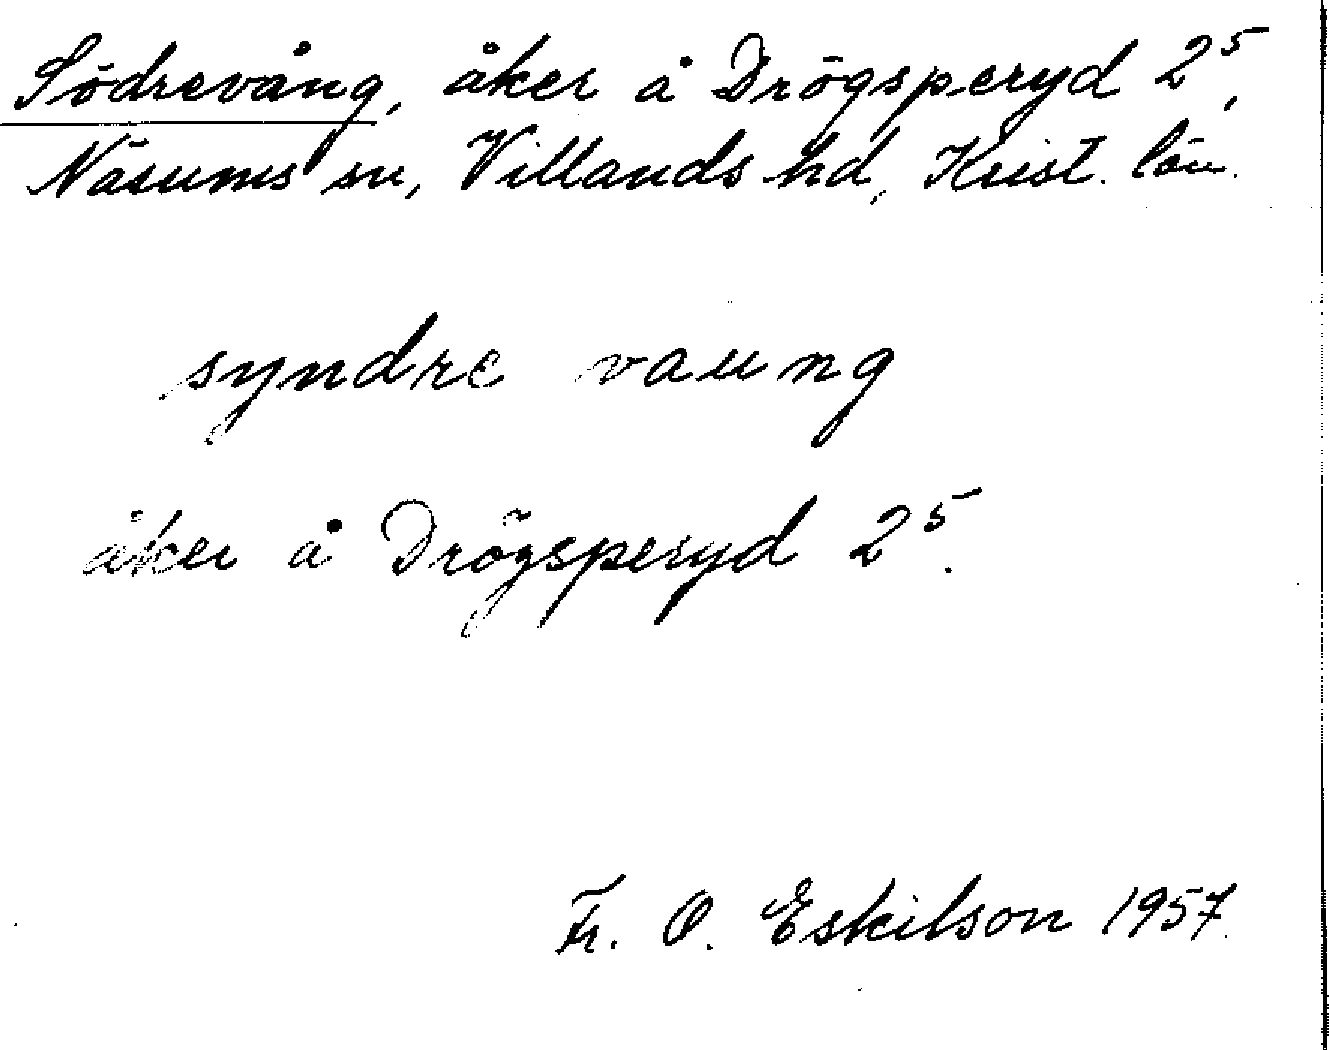 Södrevång, åker å Drögsperyd 2⁵,
Näsums sn, Villands hd, Krist. län.
syndre vaung
åker å Drögsperyd 2⁵.
Fr. O. Eskilson 1957.